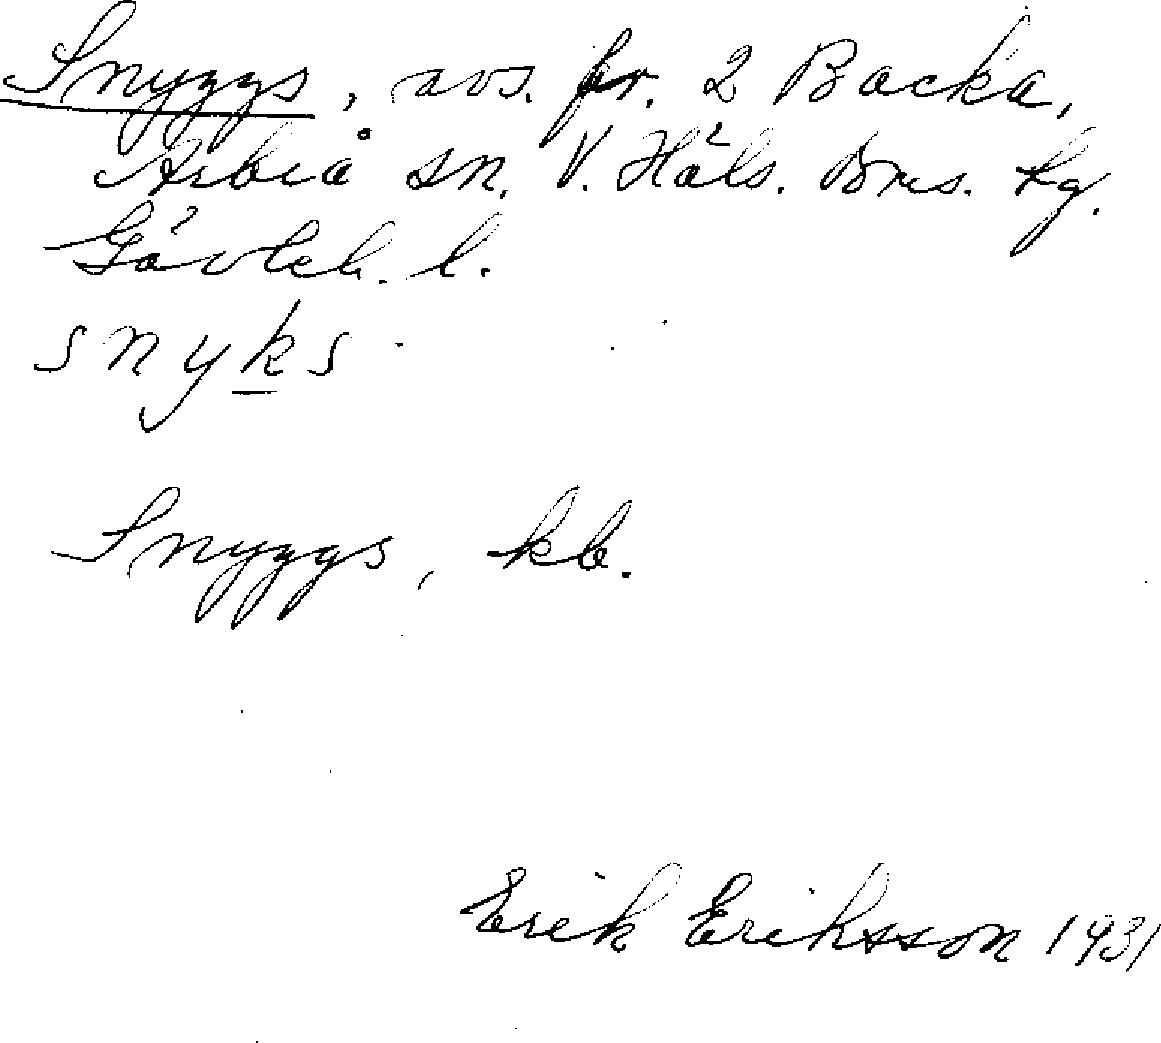 Snyggs, avs. fr. 2 Backa,
Arbrå sn. V. Häls. Dms. tg.
Gävleb. l.
snyks
Snyggs, kb.
Erik Eriksson 1931